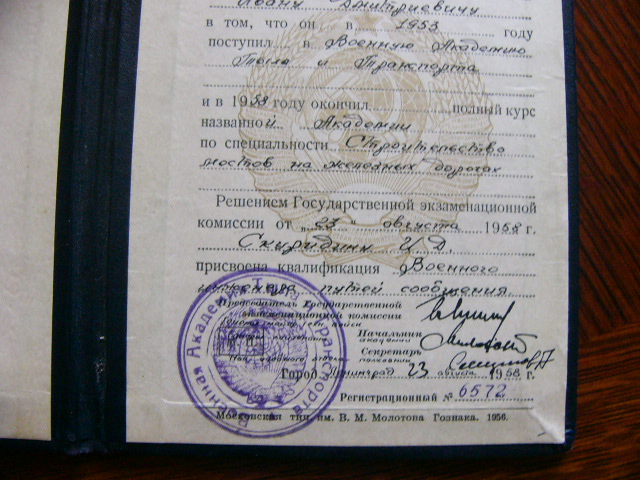 Ивану Дмитриевичу
в том, что он в 1953 году
поступил в Военную Академию
Тыла и Транспорта
и в 1958 году окончил полный курс
названной Академии
по специальности Строительство
мостов на железных дорогах
Решением Государственной экзаменационной
комиссии от „23“ августа 1958 г.
Скуридину И.Д.
присвоена квалификация Военного
инженера путей сообщения.
Председатель Государственной
экзаменационной комиссии
Начальник
академии
Секретарь
Город Ленинград 23 августа 1958 г.
Регистрационный № 6572
Московская тип. им. В. М. Молотова Гознака. 1956.